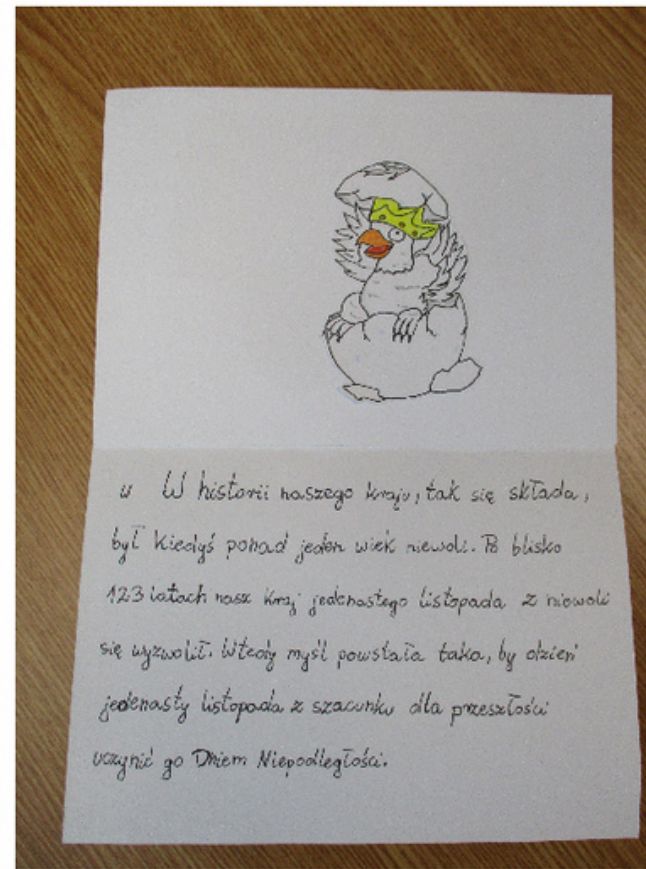 " W historii naszego kraju, tak się składa,
był kiedyś ponad jeden wiek niewoli. Po blisko
123 latach nasz kraj jedenastego listopada z niewoli
się wyzwolił. Wtedy myśl powstała taka, by dzień
jedenasty listopada z szacunku dla przeszłości
uczynić go Dniem Niepodległości.